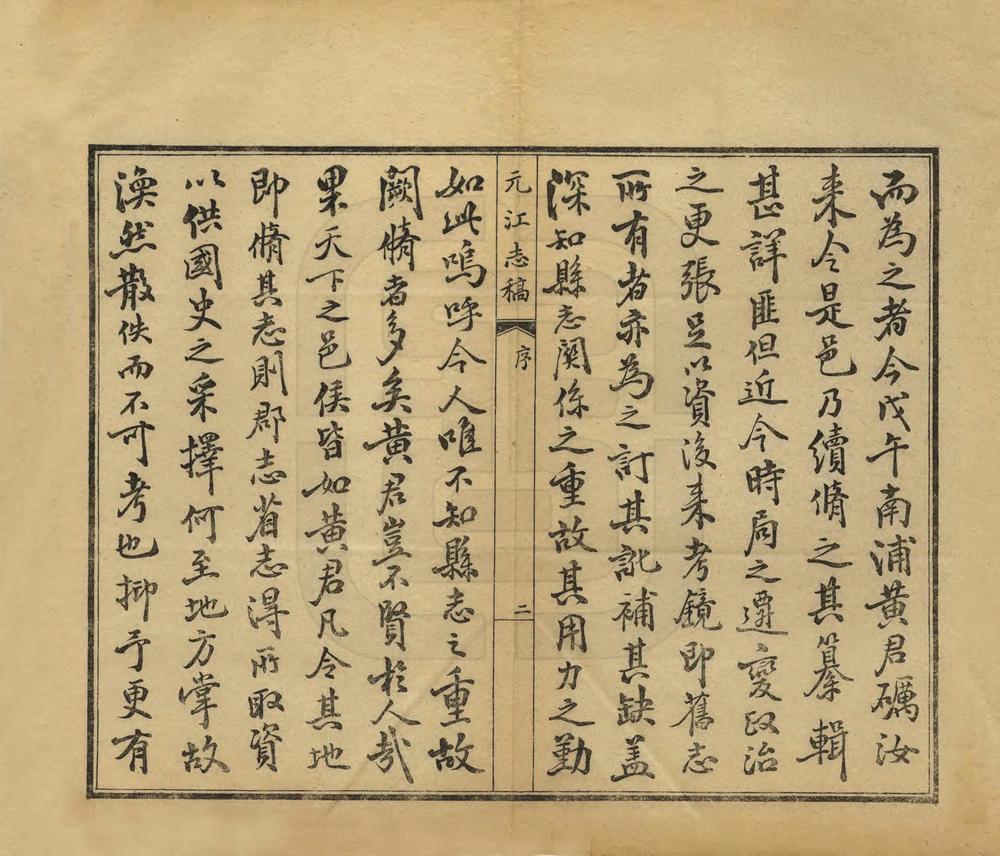 而為之者今戊午南浦黄君礪汝
来令是邑乃續脩之其纂輯
甚詳匪但近今時局之遷變政治
之更張足以資後来考鏡即舊志
所有者亦為之訂其訛補其缺盖
深知縣志関係之重故其用力之勤
元江志稿
序
二
如此嗚呼今人唯不知縣志之重故
闕脩者多矣黄君豈不賢於人哉
果天下之邑侯皆如黄君凡令其地
即脩其志則郡志省志得所取資
以供國史之采擇何至地方掌故
渙然散佚而不可考也抑予更有